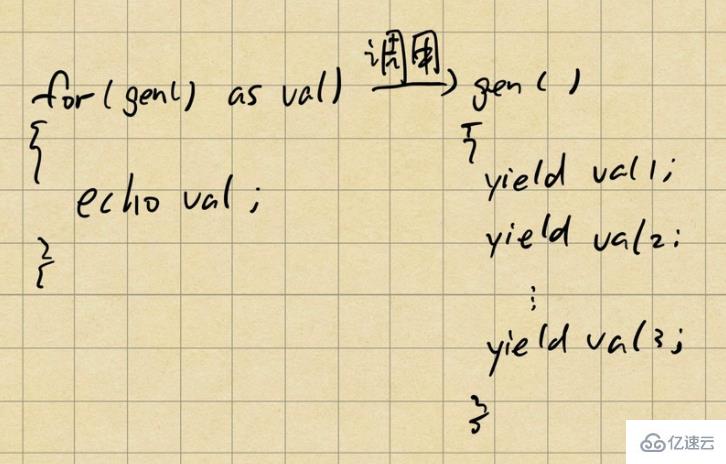 for(gen() as val) 调用 gen()
{
echo val;
}
{
yield val1;
yield val2;
⋮
yield val3;
}
亿速云